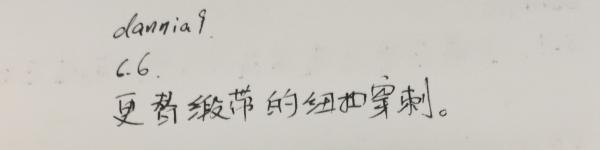 dannia9.
6.6.
更替缎带的纽扣穿刺。